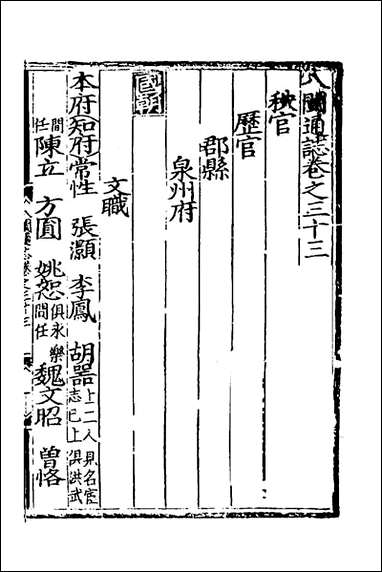 八閩通誌卷之三十三
秩官
歷官
郡縣
泉州府
國朝
文職
本府知府常性 張灝 李鳳 胡器上二人見名宦志已上俱洪武
間任陳立 方圓 姚恕俱永樂間任魏文昭 曾恪